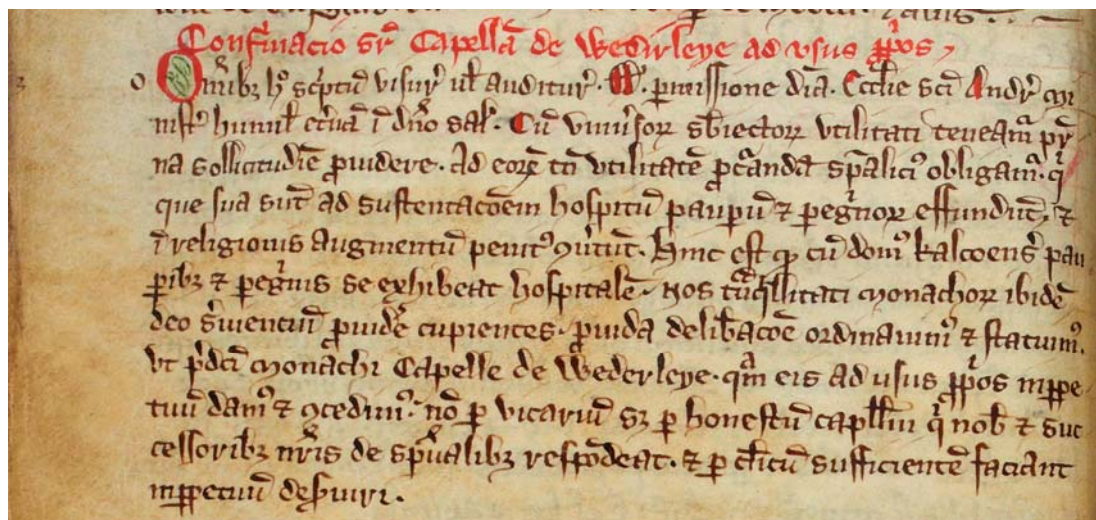 Confirmacio sr̄ Capellā de Wederleye ad vsus ꝓp̄os
O Omībꝫ h̄ sc̄ptū visur̄ ul̓ auditur̄ . W . p̱missione diā . Eccl̄ie sc̄i Andr̄ mi
nist̄ humil̓ et̄nā ī dn̄o sal̓ . Cū vniu̓soꝝ sb̄iectoꝝ vtilitati teneam̄ pͥ
na sollicitudīe ꝓuidere . Ad eoꝝ tn̄ vtilitatē ꝓcͣandā sp̄aliciꝰ obligam̄ . qͥ
que sua sūt ad sustentac̄oem hospitū paup̱ū ⁊ peg̓noꝝ effundūt , ⁊
ī religionis augmentū penitꝰ ꝯu̓tūt . Hinc est ꝙ cū domꝰ kalcoens̄ pau
p̱ibꝫ ⁊ peg̓nis se exhibeat hospitalē . nos tͣqͥllitati monachoꝝ ibidē
deo s̓uientiū ꝓuid̓e cupientes . ꝓuida delib̓ac̄oe ordinauimꝰ ⁊ statuimꝰ .
vt p̄dc̄i monachi Capelle de Wederleye . qͣm eis ad usus ꝓp̓os inp̱pe
tuū damꝰ ⁊ ꝯcedimꝰ . nō p̱ vicariū sꝫ p̱ honestū capll̄m qͥ nob̄ ⁊ suc
cessoribꝫ nr̄is de sp̄ualibꝫ respōdeat . ⁊ p̱ cl̄icū sufficientē faciant
inp̱petuū des̓uiri .